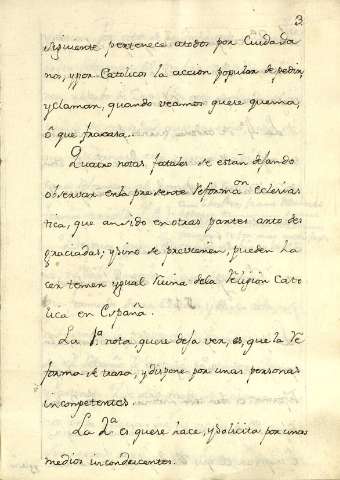 3
siguiente pertenece atodos por Ciudada
nos, ypor Catolicos la accion popular de pedir
yclamar, quando veamos quese queria,
ô que fracasa.
Quatro notas fatales se están dejando
observar enla presente Reforma.on Eclesias
tica, que an sido en otras partes anto des
graciadas; ysino se previenen, pueden ha
cer temer ygual Ruina dela Religion Cato
lica en España.
La 1.a nota, quese deja ver, es, que la Re
forma se traza, ydispone por unas personas
incompetentes.
La 2.a es quese hace, ysolicita por unos
medios incondecentes.